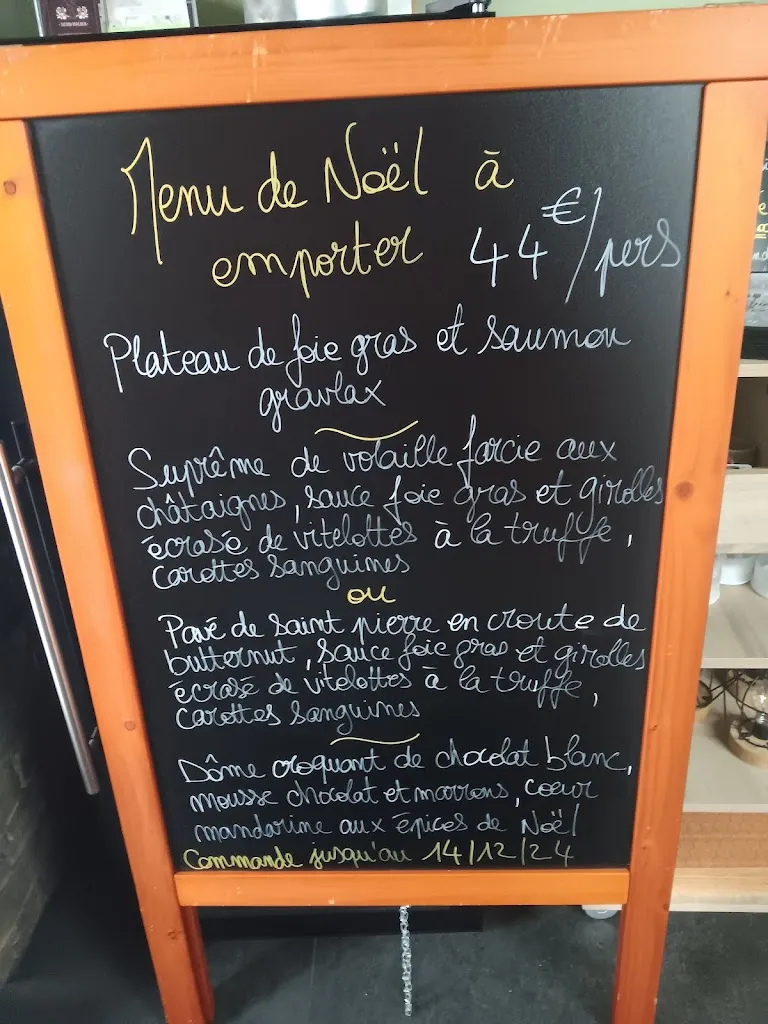 Menu de Noël à
emporter 44€/pers
Plateau de foie gras et saumon
gravlax
Suprême de volaille farcie aux
châtaignes, sauce foie gras et girolles
écrasé de vitelottes à la truffe,
carottes sanguines
ou
Pavé de saint pierre en croute de
butternut, sauce foie gras et girolles
écrasé de vitelottes à la truffe,
carottes sanguines
Dôme croquant de chocolat blanc,
mousse chocolat et marrons, coeur
mandarine aux épices de Noël
Commande jusqu'au 14/12/24